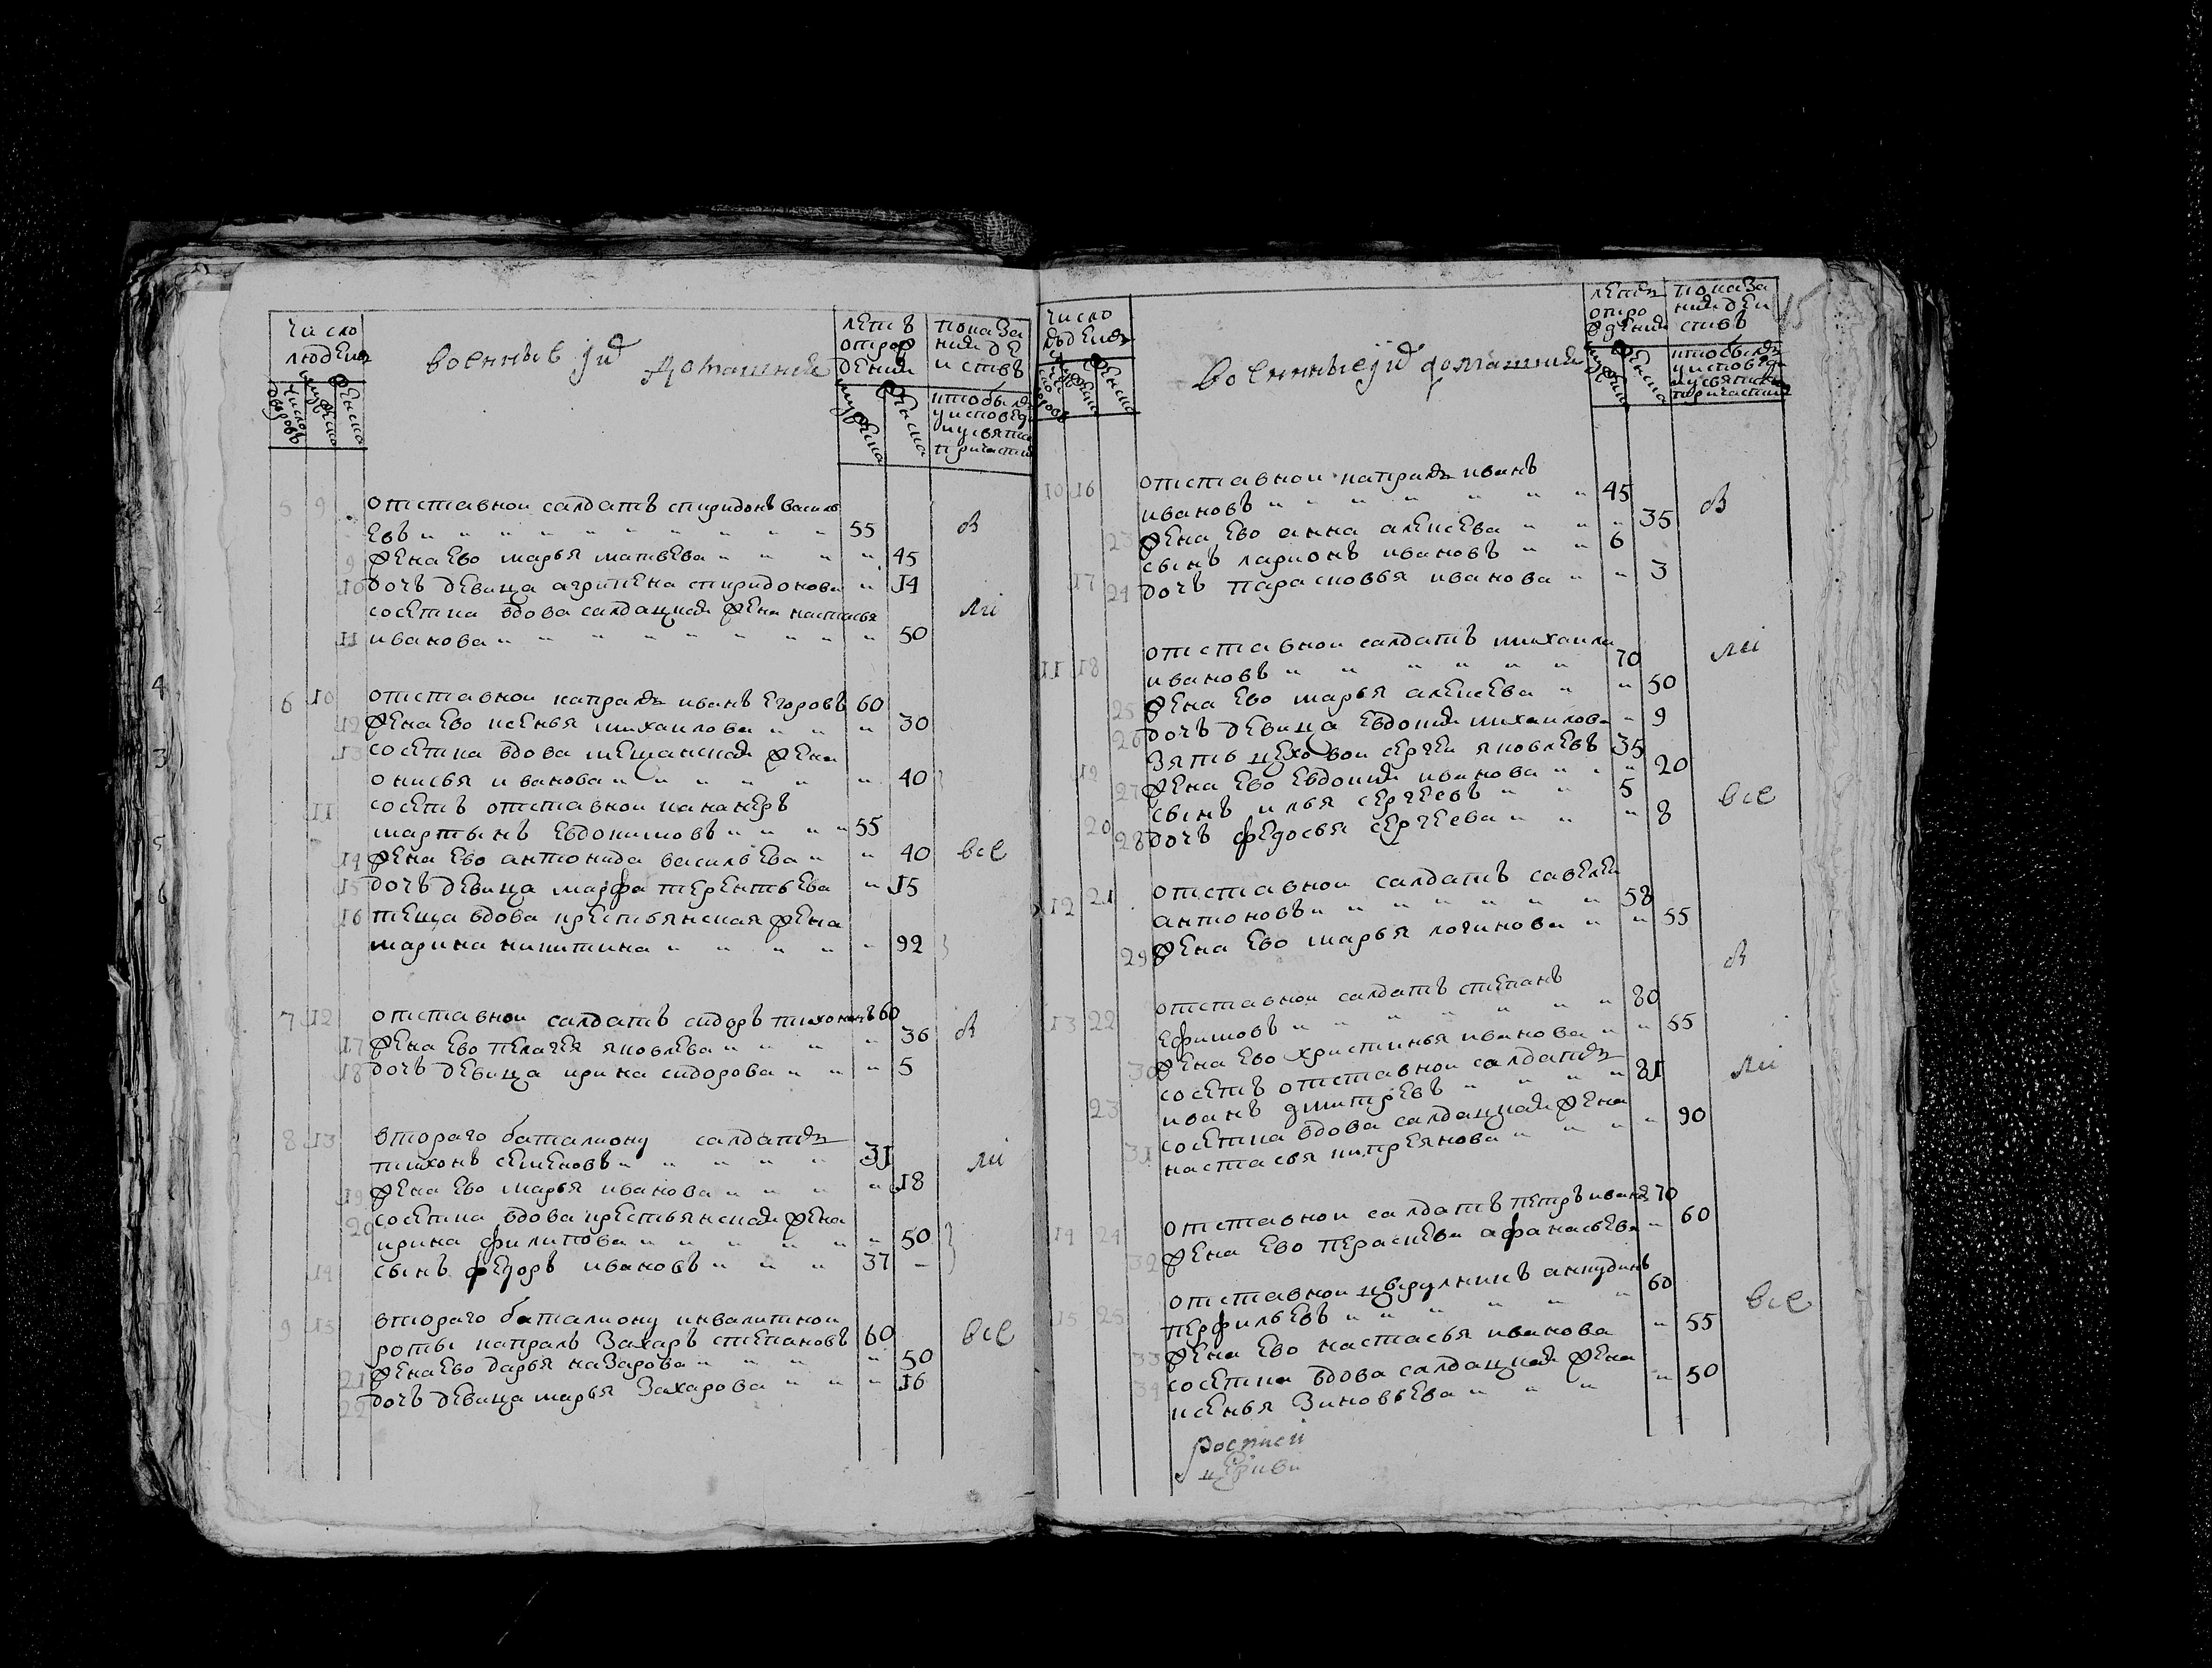 число
людеи
число дворовъ
мужеска
женска
военные и их домашния
летъ
отрож
дения
мужеска
женска
показа
ние де
иствъ
кто былъ
у исповеди
и у святаго
причастия
5 9 отставнои салдатъ спиридонъ василь
евъ 55
9 жена ево марья матвева 45
10 дочь девица агрипена спиридонова 14
соседка вдова салдацкая жена настасья
11 иванова 50
6 10 отставнои капралъ иванъ егоровъ 60
12 жена ево ксенья михаилова 30
13 соседка вдова мещанская жена
онисья иванова 40
11 соседъ отставнои кананеръ
мартынъ евдокимовъ 55
14 жена ево антонида васильева 40 все
15 дочь девица марфа терентьева 15
16 теща вдова крестьянская жена
марина никитина 92
7 12 отставнои салдатъ сидоръ тихоновъ 60
17 жена ево пелагея яковлева 36
18 дочь девица ирина сидорова 5
8 13 втораго баталиону салдатъ
тихонъ семеновъ 31
19 жена ево марья иванова 18
20 соседка вдова крестьянская жена
ирина филипова 50
14 сынъ федоръ ивановъ 37
9 15 втораго баталиону инвалитнои
роты капралъ захаръ степановъ 60 все
21 жена ево дарья назарова 50
22 дочь девица марья захарова 16
число
людеи
число дворовъ
мужеска
женска
военные и их домашния
летъ
отро
ждения
мужеска
женска
показа
ние деи
ствъ
кто былъ
у исповеди
и у святаго
причастия
15
10 16 отставнои капралъ иванъ
ивановъ 45
23 жена ево анна алексева 35
17 сынъ ларионъ ивановъ 6
24 дочь парасковья иванова 3
11 18 отставнои салдатъ михаила
ивановъ 70
25 жена ево марья алексева 50
26 дочь девица евдокия михаилова 9
19 зять цеховои сергеи яковлевъ 35
27 жена ево евдокия иванова 20
20 сынъ илья сергеевъ 5 все
28 дочь федосья сергеева 8
12 21 отставнои салдатъ савелеи
антоновъ 58
29 жена ево марья логинова 55
13 22 отставнои салдатъ степанъ
ефимовъ 80
30 жена ево христинья иванова 55
соседъ отставнои салдатъ
23 иванъ дмитревъ 81
соседка вдова салдацкая жена
31 настасья киприянова 90
14 24 отставнои салдатъ петръ ивановъ 70
32 жена ево афанасьева 60
15 25 отставнои анкудинъ
перфильевъ 60 все
33 жена ево настасья иванова 55
34 соседка вдова салдацкая жена
ксенья зиновьева 50
росписи
церкви